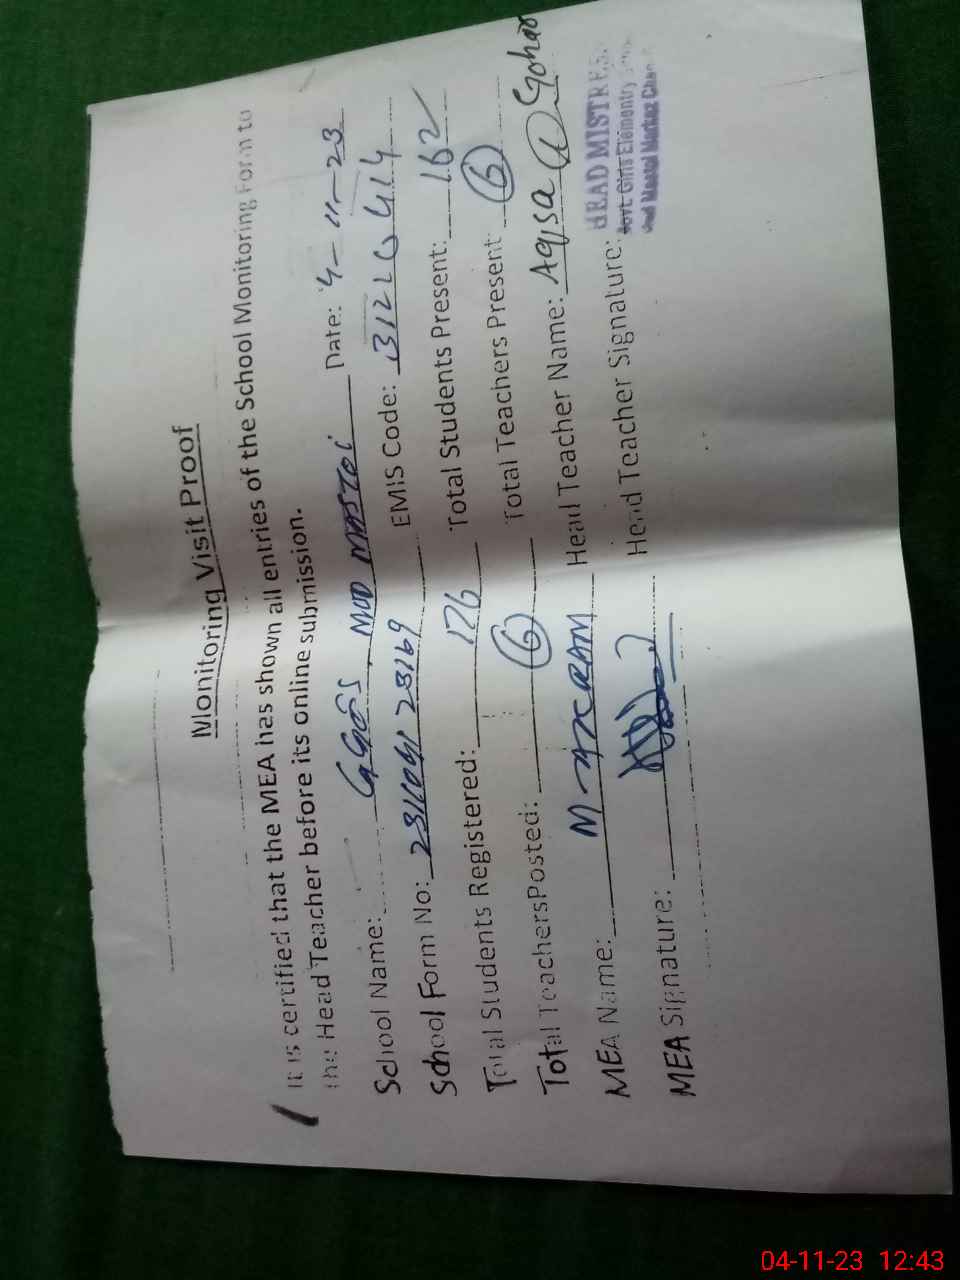 Monitoring Visit Proof
It is certified that the MEA has shown all entries of the School Monitoring Form to
the Head Teacher before its online submission.
School Name: GGES MUD MASTOI Date: 4-11-23
School Form No: EMIS Code:
Total Students Registered: 176 Total Students Present: 162
Total TeachersPosted: 6 Total Teachers Present: 6
MEA Name: M- Head Teacher Name: Aqisa Gohar
MEA Signature: Head Teacher Signature:
HEAD MISTRES
Govt. Girls Elementry
04-11-23 12:43